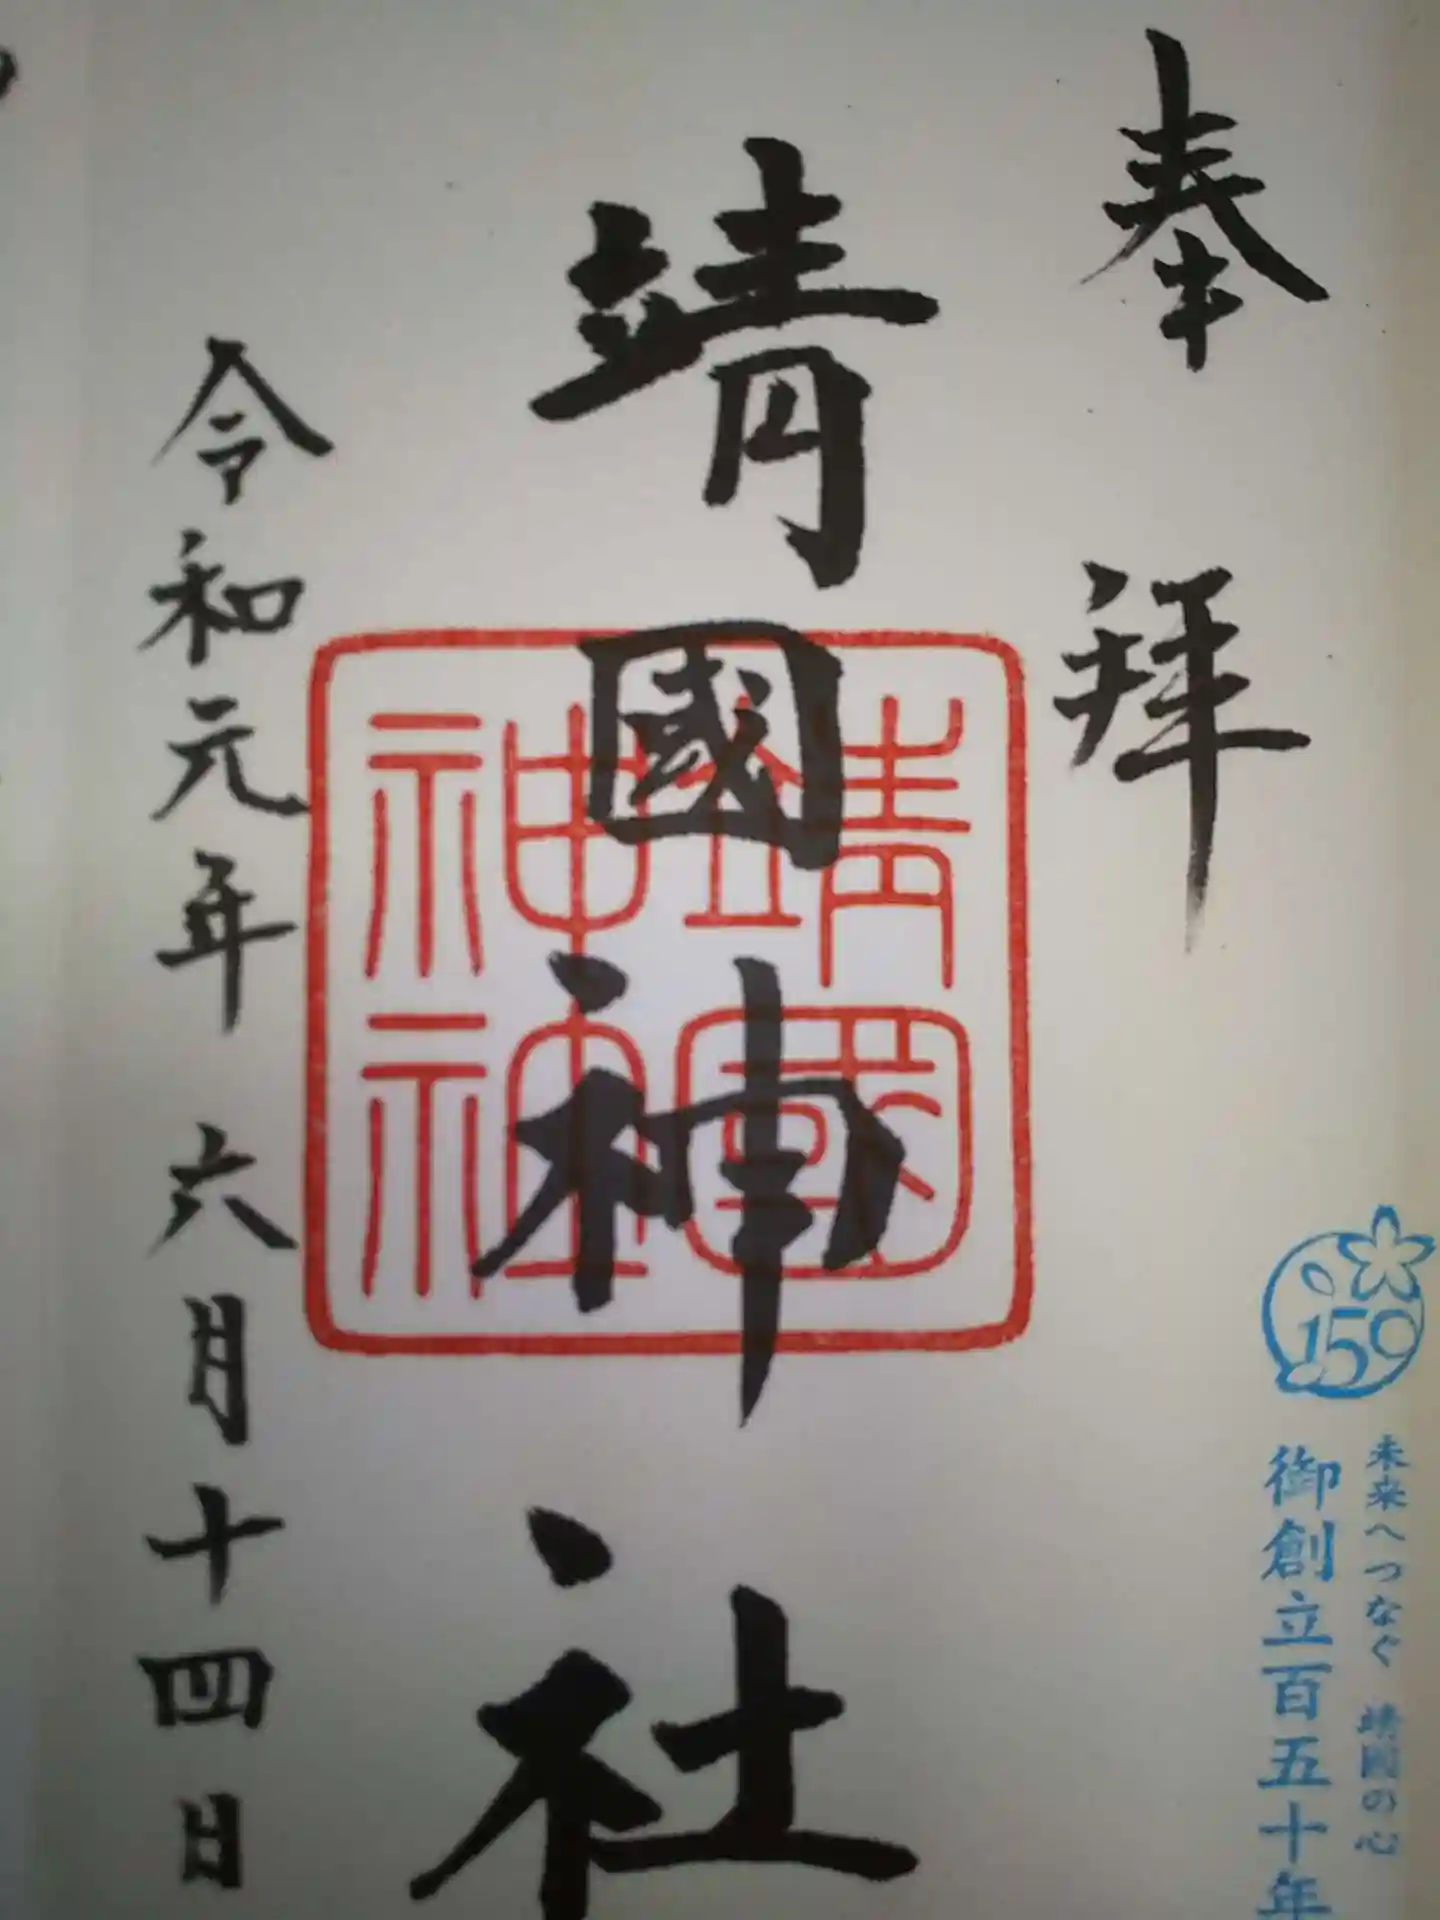 奉拝
靖國神社
靖國神社
令和元年六月十四日
150
未来へつなぐ 靖國の心
御創立百五十年